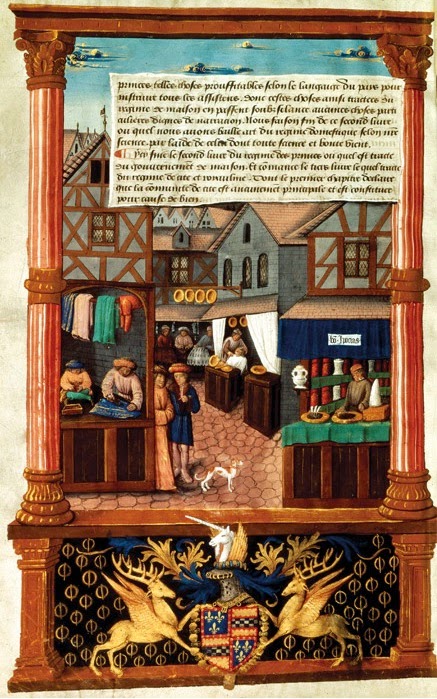 princes telles choses prouffitables selon le languaige du pays pour
instruire tous les assistens. Donc cestes choses ainsi traictees du
regime de maison en passent soubz silance aucunes choses parti
culieres dignes de narration. Nous faison fin de ce second livre
ou quel nous avons baille art du regime domestique selon nre
science par laide de celui dont toute science et bonte vient.
Cy fine le second livre du regime des princes ou quel est traite
du gouvernement de maison. Et comance le tiers livre le quel traite
du regime de cite et roiaulme. Dont le premier chapitre declaire
que la comunite de cite est aucunement principale et est constituee
pour cause de bien.
bõ ypocras